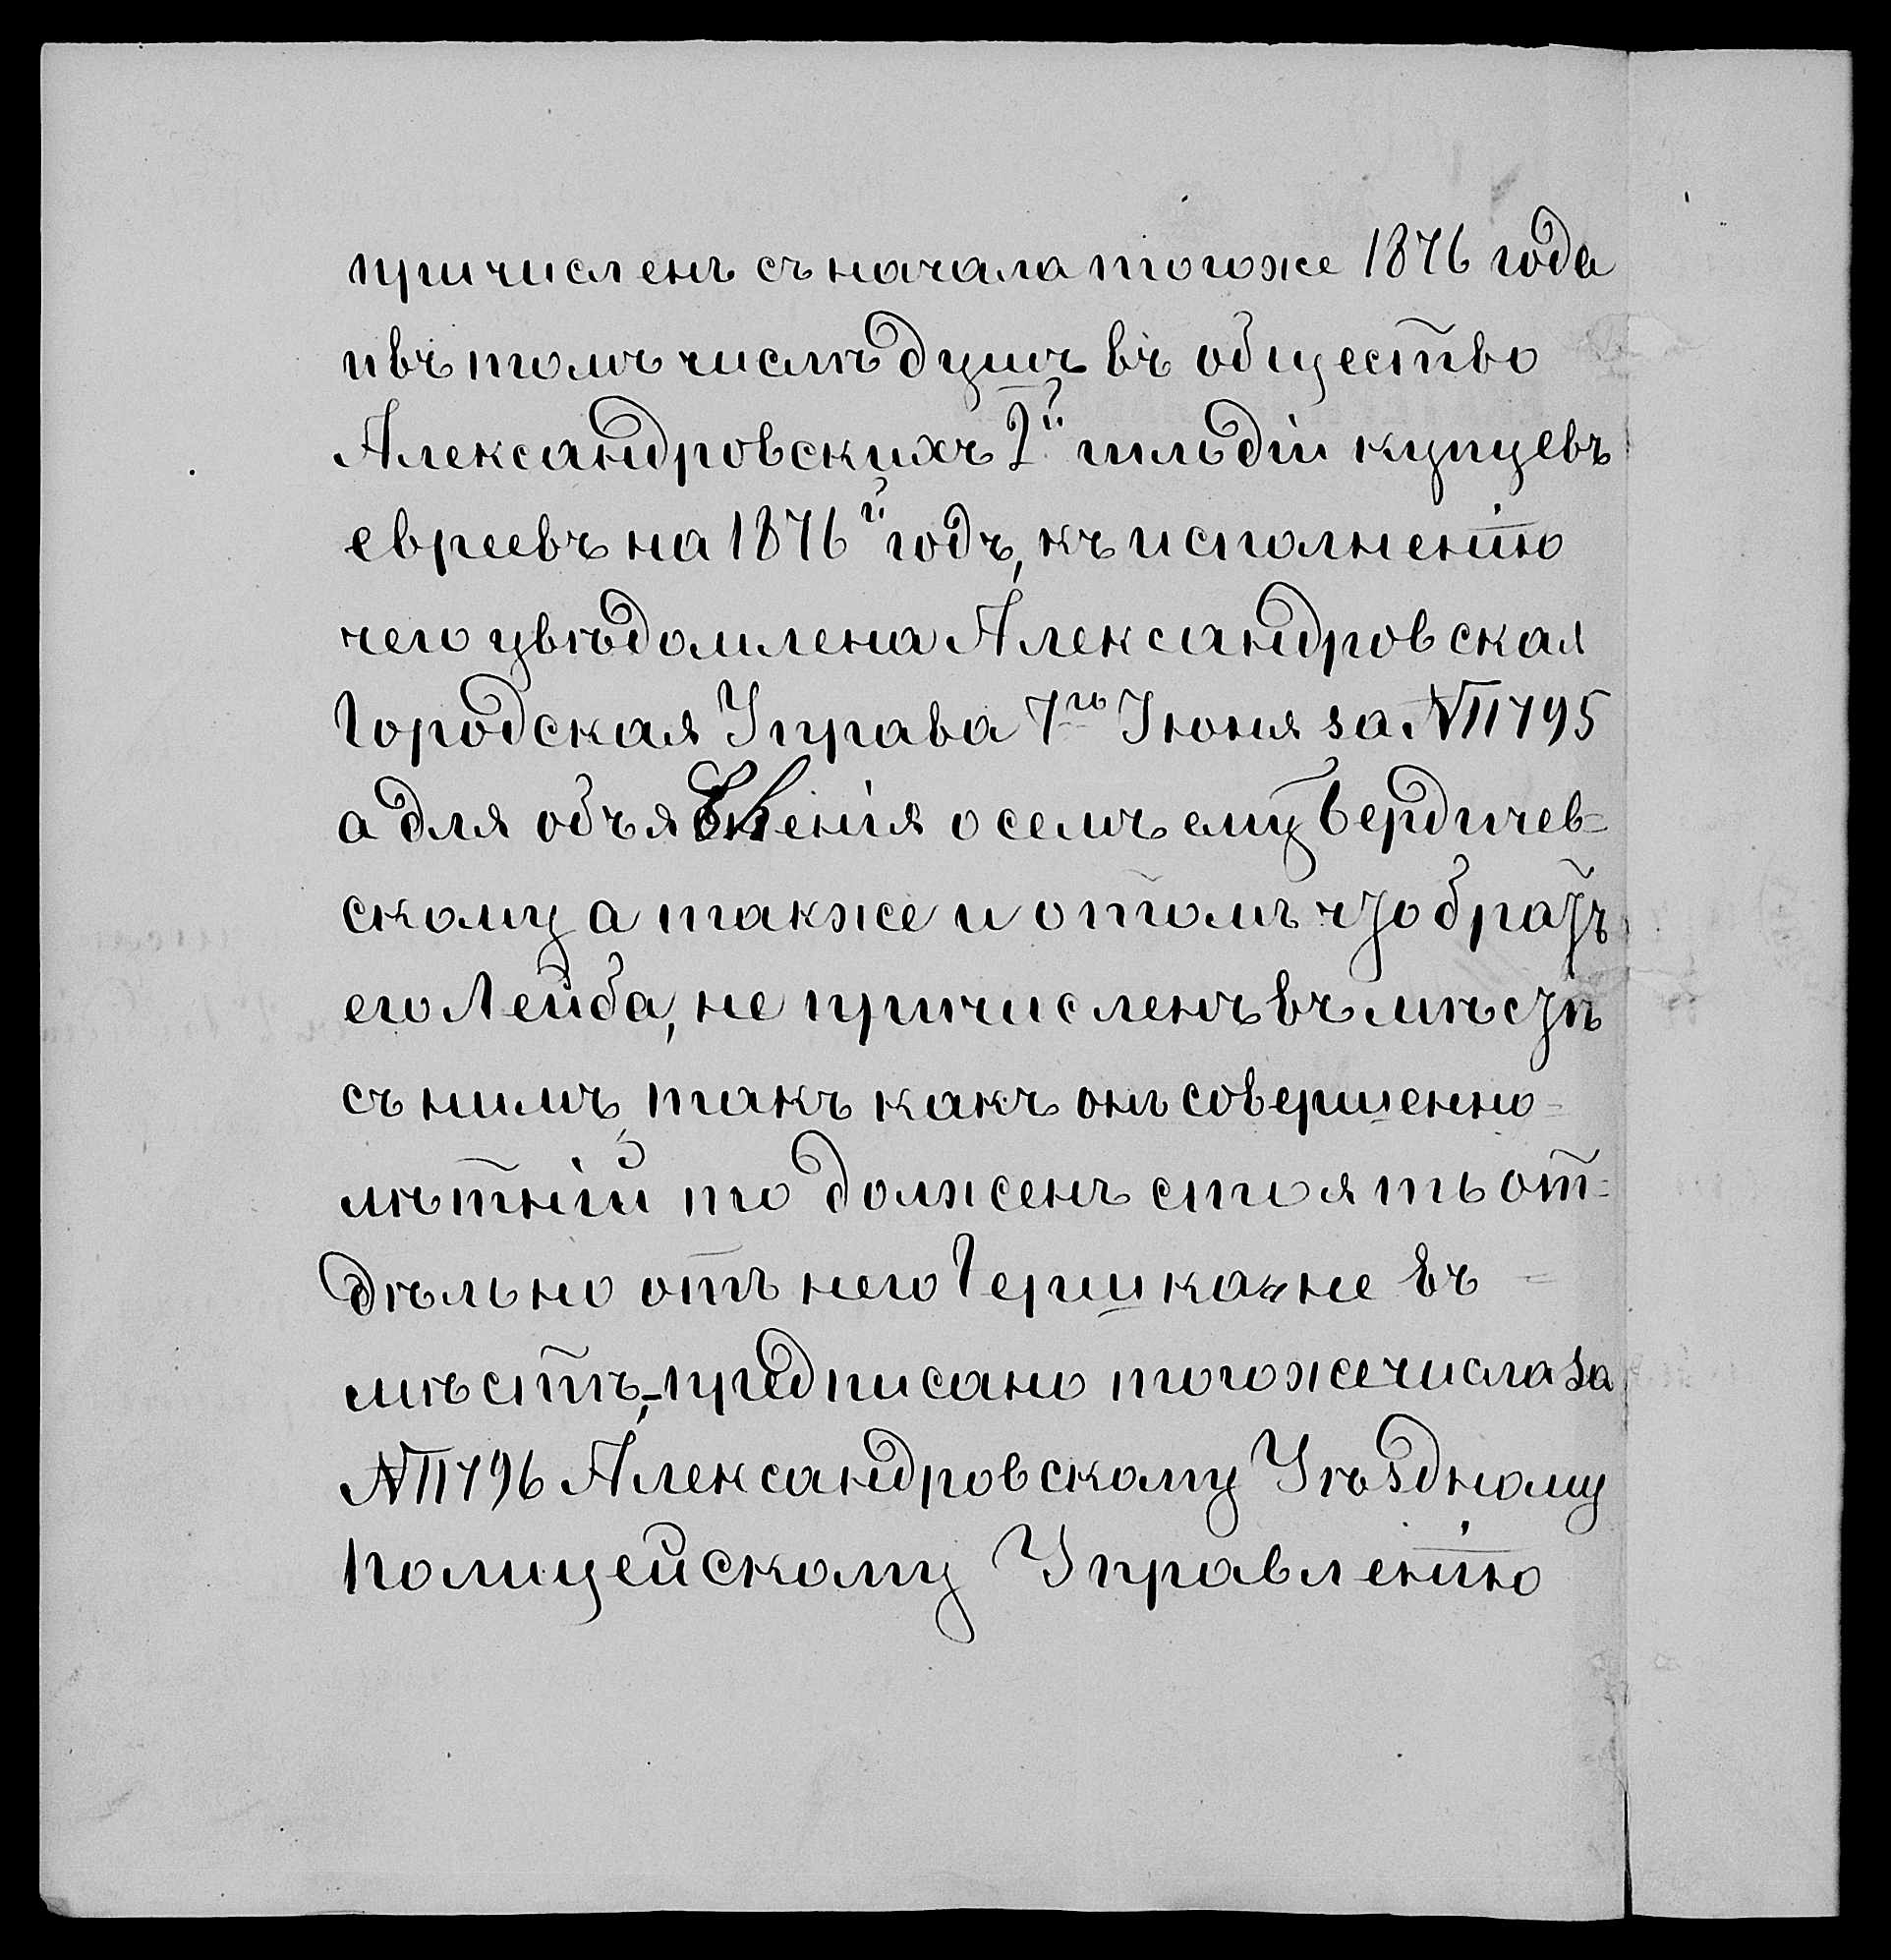 причисленъ съ начала тогоже 1876 года
и въ томъ числѣ душъ въ общество
Александровскихъ 2й гильдіи купцевъ
евреевъ на 1876й годъ, къ исполненію
чего увѣдомлена Александровская
Городская Управа 7го Іюня за № 11795
а для объявленія о семъ ему Бердичев=
скому а также и о томъ что братъ
его Лейба, не причисленъ въ мѣстѣ
съ нимъ, такъ какъ онъ совершенно=
лѣтній то долженъ стоять от=
дѣльно отъ него Гершка и не въ =
мѣстѣ,- предписано тогоже числа за
№ 11796 Александровскому Уѣздному
Полицейскому Управленію